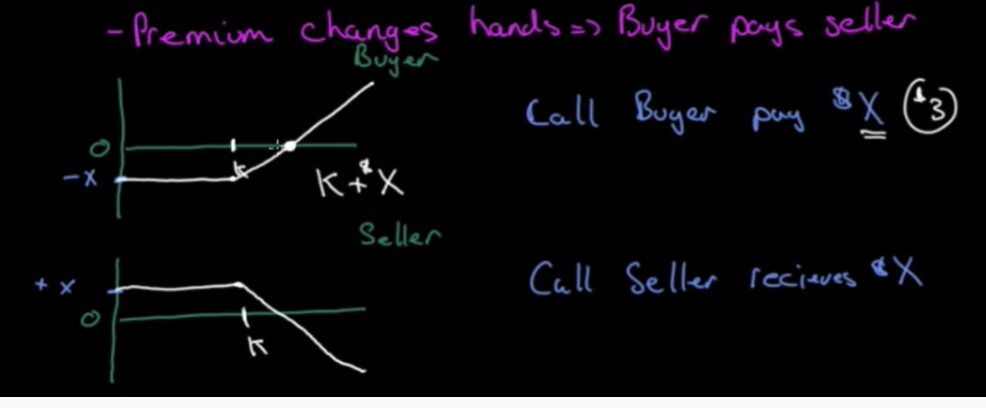 - Premium changes hands => Buyer pays seller
Buyer
Call Buyer pay $X $3
0
K
-X
K+$X
Seller
+ X
Call Seller recieves $X
0
K